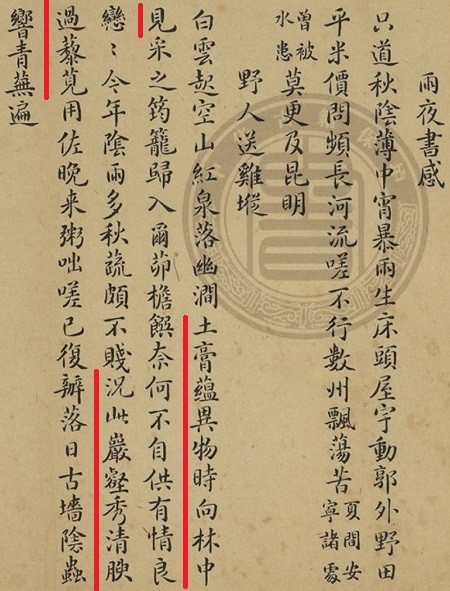 雨夜書感
只道秋陰薄中宵暴雨生床頭屋宇動郭外野田
平米價問頻長河流嗟不行數州飄蕩苦夏間安寧諸處
曾被水患莫更及昆明
野人送雞㙡
白雲起空山紅泉落幽澗土膏蘊異物時向林中
見采之筠籠歸入爾茆檐饌奈何不自供有情良
戀〻今年陰雨多秋蔬頗不賤況此巖壑秀清腴
過藜莧用佐晚来粥咄嗟已復辦落日古墻陰蟲
響青蕪遍